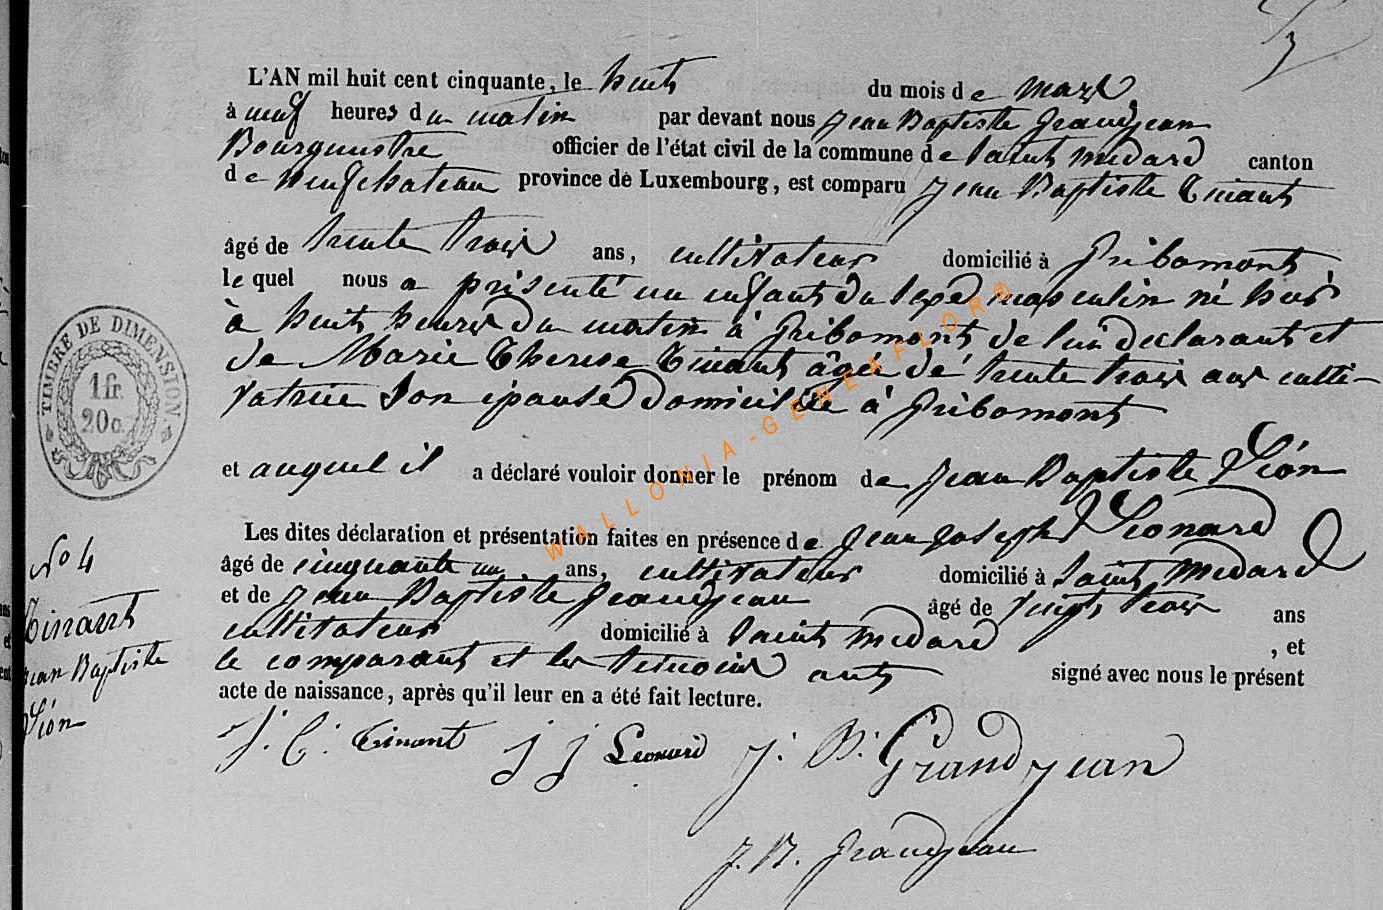 3
L'AN mil huit cent cinquante, le huit du mois de mars
à neuf heures du matin par devant nous Jean Baptiste Grandjean
Bourgmestre officier de l'état civil de la commune de Saint Médard canton
de Neufchateau province de Luxembourg, est comparu Jean Baptiste Tinant
âgé de trente trois ans, cultivateur domicilié à Gribomont
lequel nous a présenté un enfant du sexe masculin né hier
à huit heures du matin à Gribomont de lui déclarant et
de Marie Therese Tinant âgée de trente trois ans culti-
vatrice son épouse domiciliée à Gribomont
et auquel il a déclaré vouloir donner le prénom de Jean Baptiste Léon
Les dites déclaration et présentation faites en présence de Jean Joseph Léonard
âgé de cinquante un ans, cultivateur domicilié à Saint Médard
et de Jean Baptiste Grandjean âgé de vingt trois ans
cultivateur domicilié à Saint Médard , et
le comparant et les temoins ont signé avec nous le présent
acte de naissance, après qu'il leur en a été fait lecture.
TIMBRE DE DIMENSION
1 fr.
20 c.
No 4
Tinant
Jean Baptiste
Léon
Tinant J J Leonard J. B. Grandjean
J. B. Grandjean
WALLONIA-GENEAFLOR®